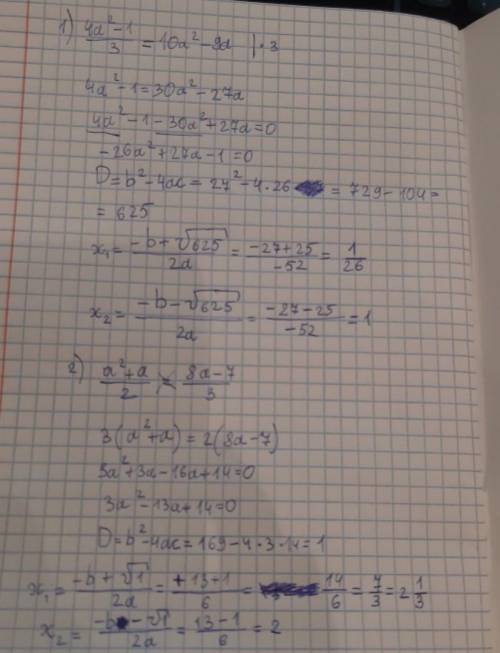 1) (4a²-1)/3 = 10a² - 9a | · 3
4a² - 1 = 30a² - 27a
4a² - 1 - 30a² + 27a = 0
-26a² + 27a - 1 = 0
D = b² - 4ac = 27² - 4 · 26 = 729 - 104 =
= 625
x₁ = (-b + √625)/2a = (-27+25)/-52 = 1/26
x₂ = (-b - √625)/2a = (-27-25)/-52 = 1
2) (a²+a)/2 = (8a-7)/3
3(a²+a) = 2(8a-7)
3a² + 3a - 16a + 14 = 0
3a² - 13a + 14 = 0
D = b² - 4ac = 169 - 4 · 3 · 14 = 1
x₁ = (-b + √1)/2a = (+13+1)/6 = 14/6 = 7/3 = 2 1/3
x₂ = (-b - √1)/2a = (13-1)/6 = 2